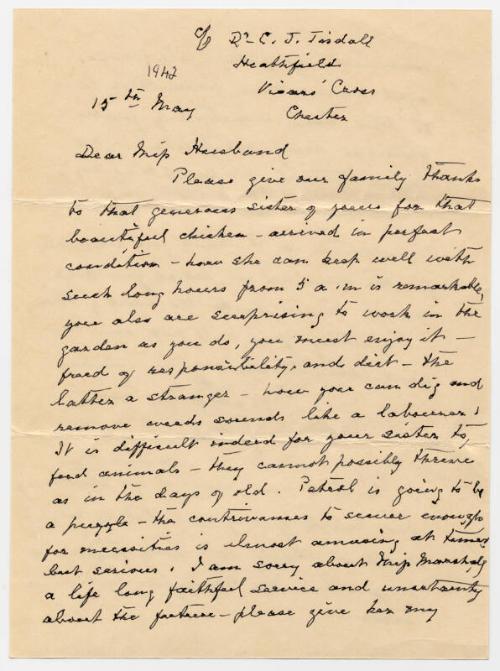 c/o Dr C. J. Tisdall
Heathfield
Vicars' Cross
Chester
1942
15th May
Dear Miss Husband
Please give our family thanks
to that generous sister of yours for that
beautiful chicken - arrived in perfect
condition - how she can keep well with
such long hours from 5 a.m is remarkable,
you also are surprising to work in the
garden as you do, you must enjoy it -
freed of responsibility, and diet - the
latter a stranger - how you can dig and
remove weeds sounds like a labourer!
It is difficult indeed for your sister to
feed animals - they cannot possibly thrive
as in the days of old. Petrol is going to be
a puzzle - the contrivances to secure enough
for necessities is almost amusing at times
but serious. I am sorry about Miss Marshall,
a life long faithful service and uncertainty
about the future - please give her my